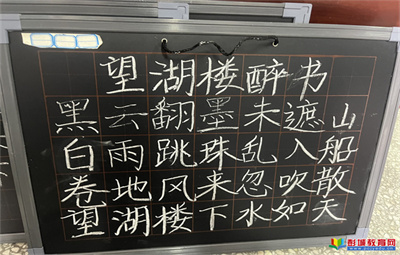 望湖楼醉书
黑云翻墨未遮山
白雨跳珠乱入船
卷地风来忽吹散
望湖楼下水如天
彭城教育网